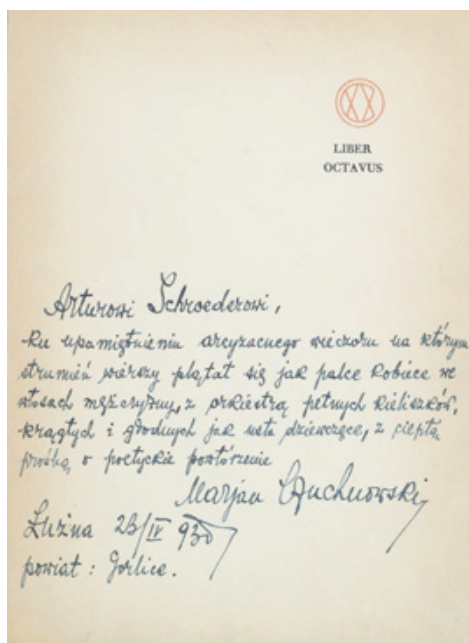 LIBER
OCTAVUS
Arturowi Schroederowi,
ku upamiętnieniu arcyzacnego wieczoru na którym
strumień wierszy plątał się jak palce kobiece we
włosach mężczyzny, z orkiestrą pełnych kieliszków,
krągłych i głodnych jak usta dziewczęce, z ciepłą
prośbą o poetyckie powtórzenie
Marjan Czuchnowski
Łużna 23/IV 930
powiat : Gorlice.